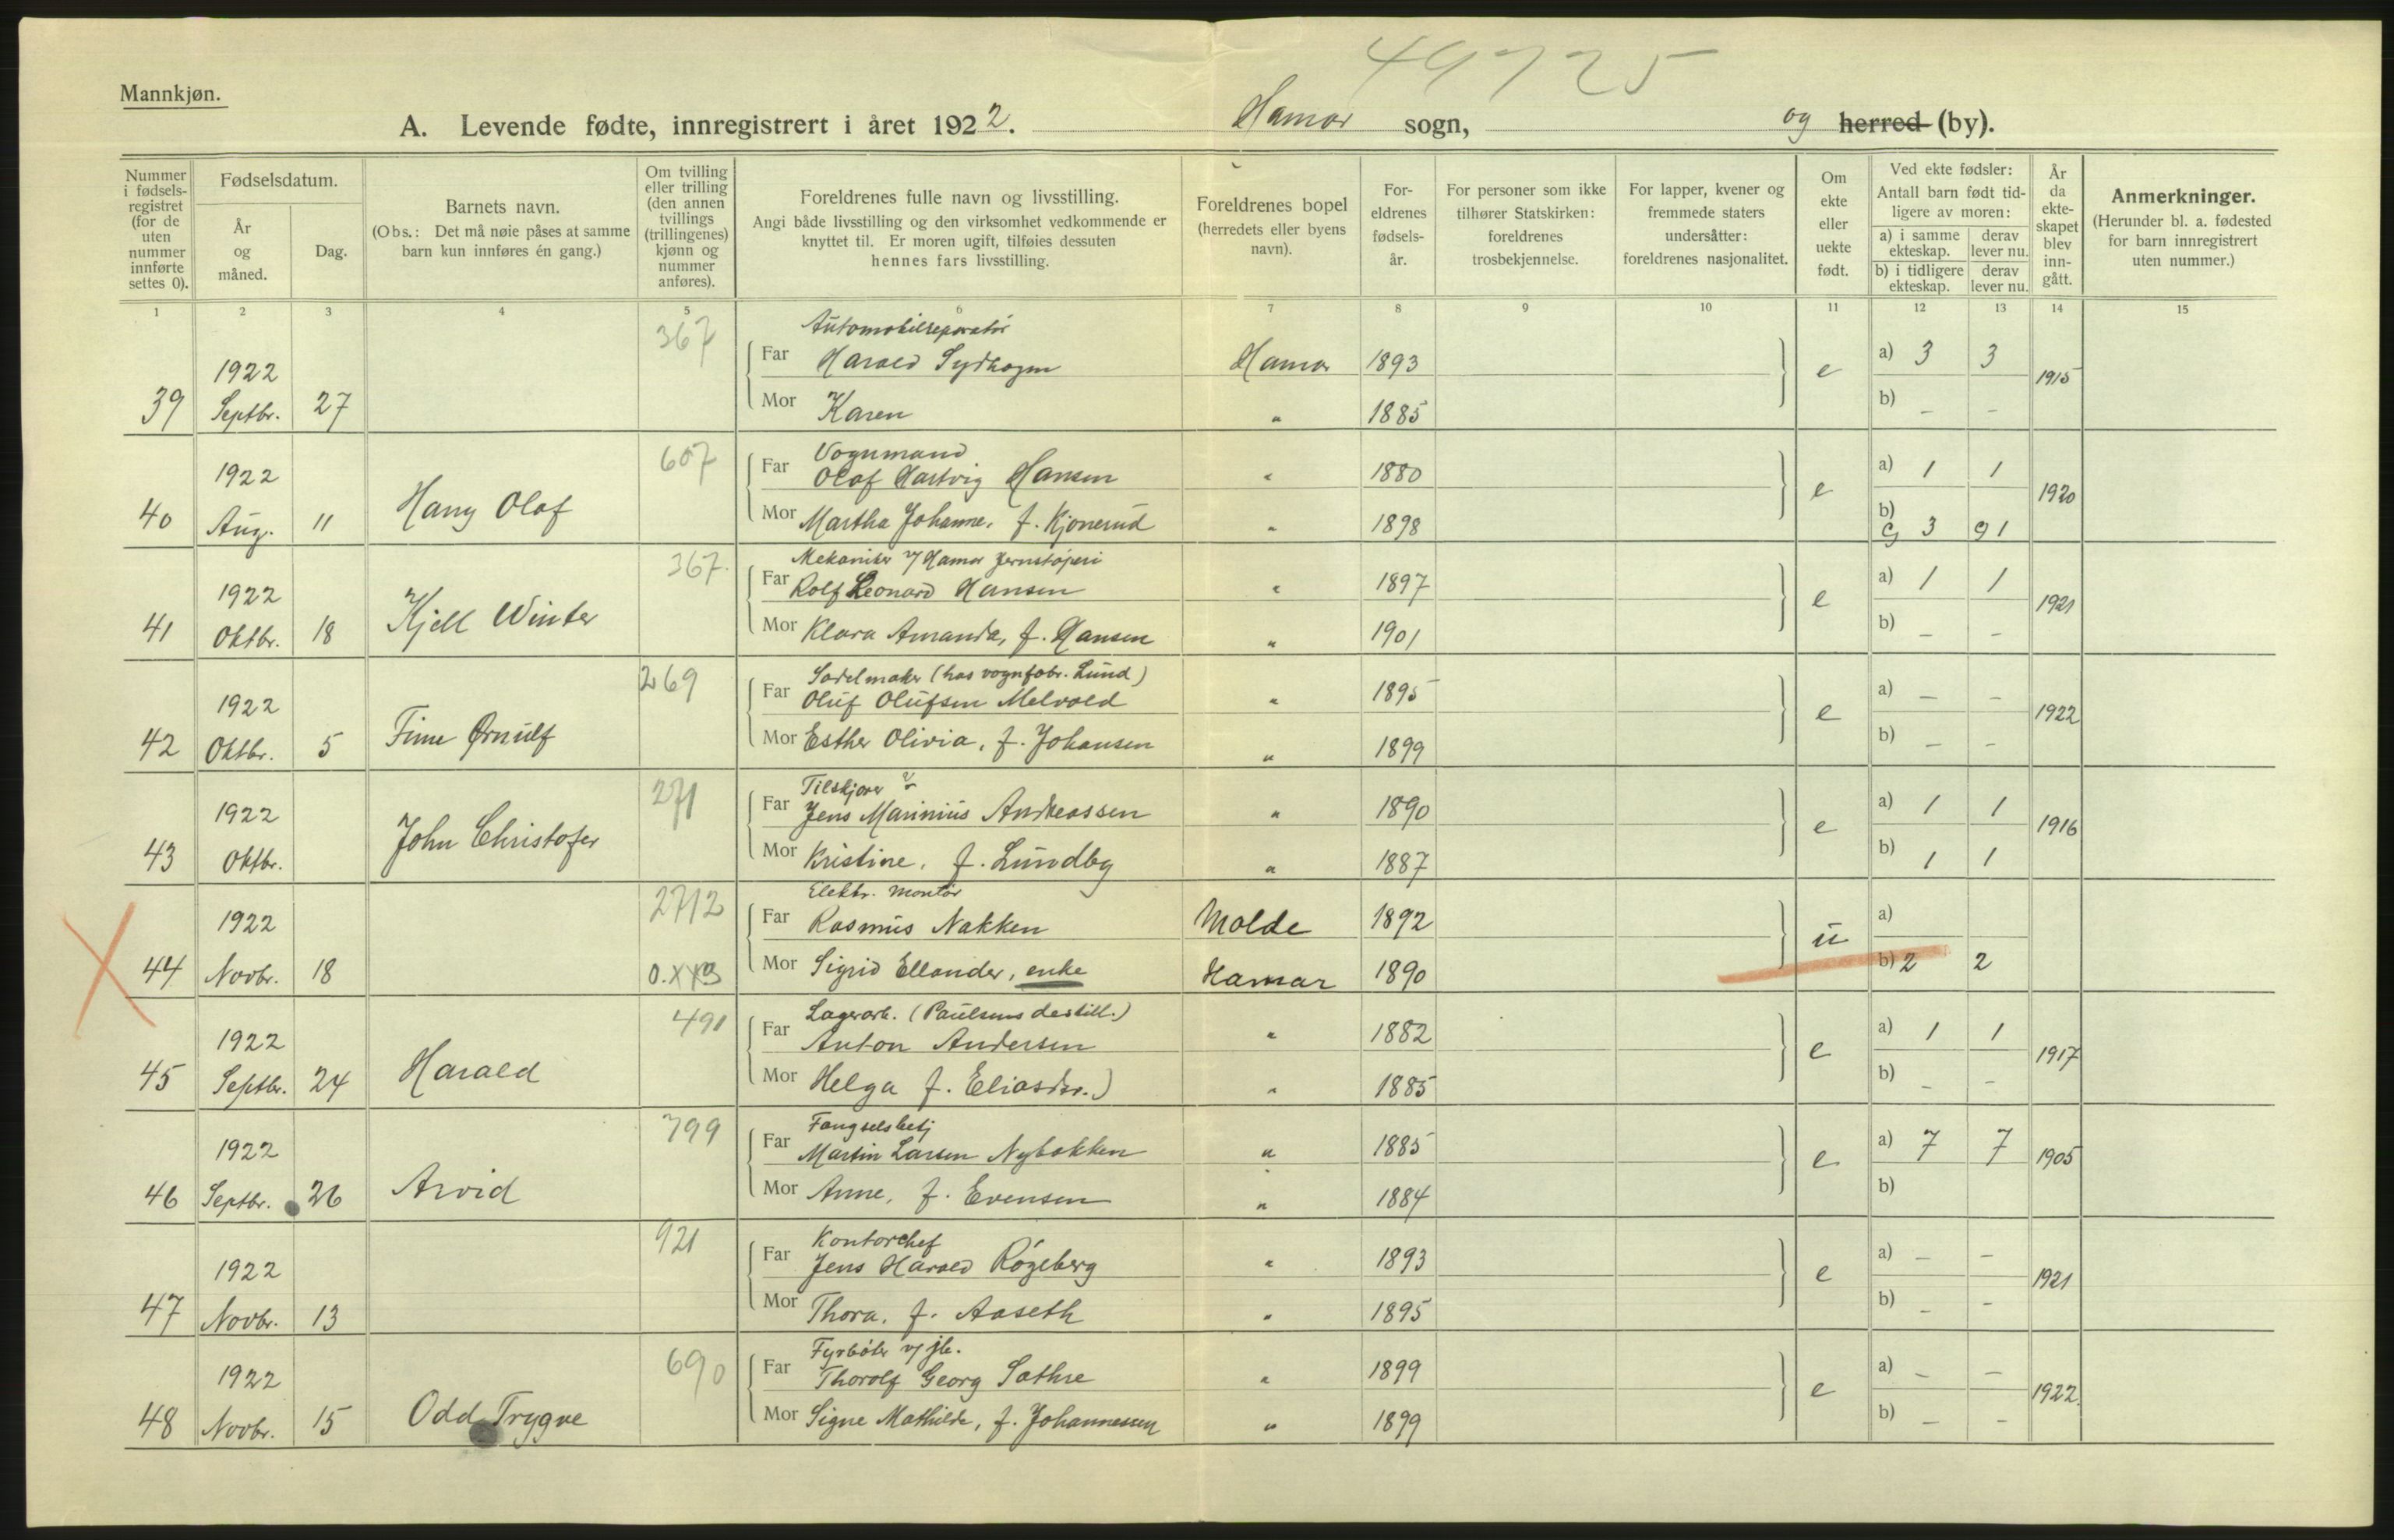 49725
Mannkjøn.
A. Levende fødte, innregistrert i året 1922. Hamar sogn, og herred (by).
Nummer i fødsels-registret (for de uten nummer innførte settes 0).
Fødselsdatum.
År og måned.
Dag.
Barnets navn.
(Obs.: Det må nøie påses at samme barn kun innføres én gang.)
Om tvilling eller trilling (den annen tvillings (trillingenes) kjønn og nummer anføres).
Foreldrenes fulle navn og livsstilling.
Angi både livsstilling og den virksomhet vedkommende er knyttet til. Er moren ugift, tilføies dessuten hennes fars livsstilling.
Foreldrenes bopel (herredets eller byens navn).
For-eldrenes fødsels-år.
For personer som ikke tilhører Statskirken: foreldrenes trosbekjennelse.
For lapper, kvener og fremmede staters undersåtter: foreldrenes nasjonalitet.
Om ekte eller uekte født.
Ved ekte fødsler:
Antall barn født tid-ligere av moren:
a) i samme ekteskap. derav lever nu.
b) i tidligere ekteskap. derav lever nu.
År da ekte-skapet blev inn-gått.
Anmerkninger.
(Herunder bl. a. fødested for barn innregistrert uten nummer.)
1 2 3 4 5 6 7 8 9 10 11 12 13 14 15
367 Automobilreparatør
1922 Far Harald Sydhagen Hamar 1893 e a) 3 3 1915
39 Septbr. 27 Mor Karen " 1885 b) – –
607 Vognmand
1922 Far Olaf Hartvig Hansen " 1880 e a) 1 1 1920
40 Aug. 11 Hans Olaf Mor Martha Johanne, f. Kjønerud " 1898 b) g 3 g 1
367. Mekaniker v/ Hamar Jernstøperi
1922 Far Rolf Leonard Hansen " 1897 e a) 1 1 1921
41 Oktbr. 18 Kjell Winter Mor Klara Amanda, f. Hansen " 1901 b) – –
269 Sadelmaker (hos vognfabr. Lund)
1922 Far Oluf Olufsen Melvold " 1895 e a) – – 1922
42 Oktbr. 5 Finn Ørnulf Mor Esther Olivia, f. Johansen " 1899 b) – –
271 Tilskjærer
1922 Far Jens Marinius Andreassen " 1890 e a) 1 1 1916
43 Oktbr. John Christofer Mor Kristine, f. Lundby " 1887 b) 1 1
2712 Elektr. montør
1922 Far Rasmus Nakken Molde 1892 u a)
44 Novbr. 18 Mor Sigrid Ellander, enke Hamar 1890 b) 2 2
491 Lagerarb. (Paulsens destill.)
1922 Far Anton Andersen " 1882 e a) 1 1 1917
45 Septbr. 24 Harald Mor Helga f. Eliasdtr.) " 1885 b) – –
799 Fangselsbetj
1922 Far Martin Larsen Nybakken " 1885 e a) 7 7 1905
46 Septbr. 26 Arvid Mor Anne, f. Evensen " 1884 b)
921 Kontorchef
1922 Far Jens Harald Røgeberg " 1893 e a) – – 1921
47 Novbr. 13 Mor Thora, f. Aaseth " 1895 b) – –
690 Fyrbøter v/ jb.
1922 Far Thorolf Georg Sæthre " 1899 e a) – – 1922.
48 Novbr. 15 Odd Trygve Mor Signe Mathilde, f. Johannessen " 1899 b) – –